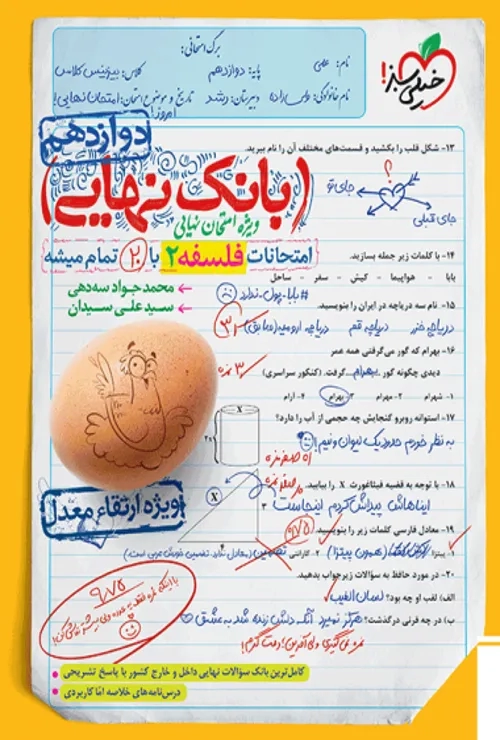 برگ امتحانی:
نام: علی
پایه: دوازدهم
کلاس: بیزینس کلاس
نام خانوادگی:
دبیرستان: رشد
تاریخ و موضوع امتحان: امتحان نهایی!
امروز
خیلی سبز!
دوازدهم
۱۳- شکل قلب را بکشید و قسمت‌های مختلف آن را نام ببرید.
؟
جای تو
جای قبلی
(بانک نهایی)
ویژه امتحان نهایی
امتحانات فلسفه ۲ با ۲۰ تمام میشه
محمدجواد سه‌دهی
سیدعلی سیدان
۱۴- با کلمات زیر جمله بسازید.
بابا - هواپیما - کیش - سفر - ساحل
#بابا_پول_ندارد
۱۵- نام سه دریاچه در ایران را بنویسید.
دریاچه خزر دریاچه قم دریاچه ارومیه (سابق)
۱۶- بهرام که گور می‌گرفتی همه عمر
دیدی چگونه گور ...بهرام... گرفت. (کنکور سراسری)
۱- شهرام ۲- مهرام ۳- بهرام ۴- آرام
۳ نمره
۱۷- استوانه روبرو گنجایش چه حجمی از آب را دارد؟
به نظر خودم حدود یک لیوان و نیم!
X
۲x
اه صفر نمره
۱۸- با توجه به قضیه فیثاغورت، X را بیابید.
صفر نمره
ایناهاش پیداش کردم اینجاست
X
۳
ویژه ارتقاء معدل
۱۹- معادل فارسی کلمات زیر را بنویسید.
۹/۷۵
۱- پیتزا (همون پیتزا) ۲- گارانتی
۲۰- در مورد حافظ به سؤالات زیر جواب بدهید.
الف) لقب او چه بود؟ لسان الغیب
ب) در چه قرنی درگذشت؟ هرگز نمیرد آنکه دلش زنده شد به عشق
نمره نمی‌گیری ولی آفرین! دمت گرم!
۹/۷۵
کامل‌ترین بانک سؤالات نهایی داخل و خارج کشور با پاسخ تشریحی
درس‌نامه‌های خلاصه امّا کاربردی